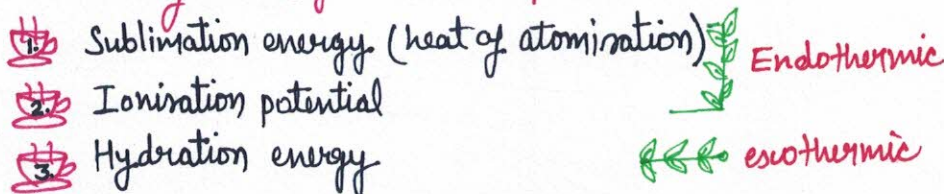 1. Sublimation energy (heat of atomisation)
Endothermic
2. Ionisation potential
3. Hydration energy
exothermic